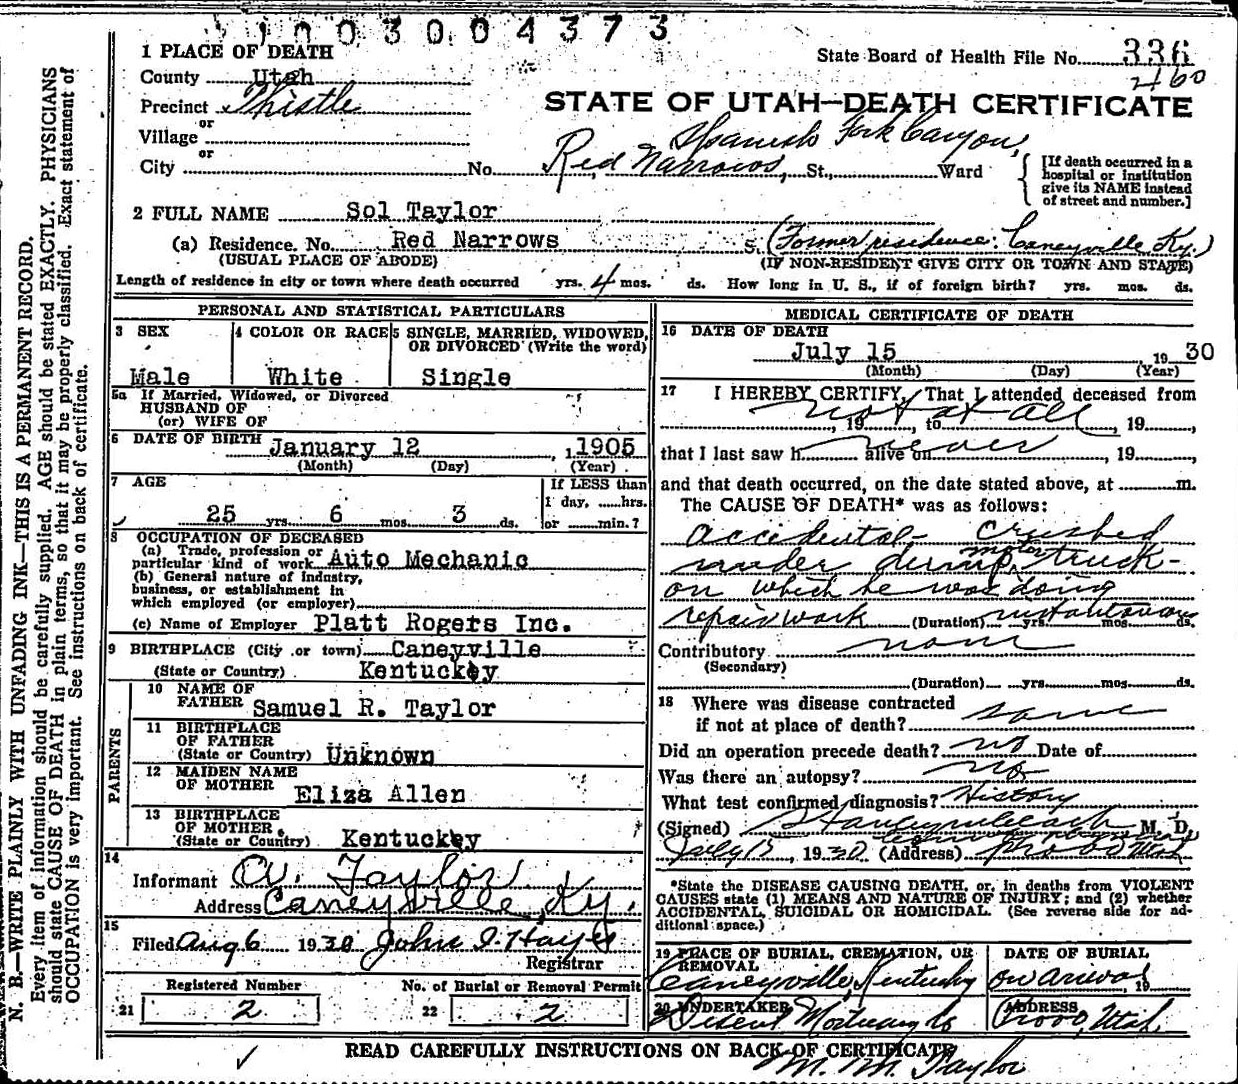 1003004373
1 PLACE OF DEATH
State Board of Health File No. 336
2460
County Utah
Precinct Thistle
or
STATE OF UTAH—DEATH CERTIFICATE
Village
or
Spanish Fork Canyon,
City No. Red Narrows, St., Ward
[If death occurred in a hospital or institution give its NAME instead of street and number.]
2 FULL NAME Sol Taylor
(a) Residence. No. Red Narrows S. (Former residence: Caneyville Ky.)
(USUAL PLACE OF ABODE) (IF NON-RESIDENT GIVE CITY OR TOWN AND STATE)
Length of residence in city or town where death occurred yrs. 4 mos. ds. How long in U. S., if of foreign birth? yrs. mos. ds.
PERSONAL AND STATISTICAL PARTICULARS
3 SEX
Male
4 COLOR OR RACE
White
5 SINGLE, MARRIED, WIDOWED, OR DIVORCED (Write the word)
Single
5a If Married, Widowed, or Divorced
HUSBAND OF
(or) WIFE OF
6 DATE OF BIRTH January 12, 1905
(Month) (Day) (Year)
7 AGE
25 yrs. 6 mos. 3 ds.
If LESS than
1 day, hrs.
or min.?
8 OCCUPATION OF DECEASED
(a) Trade, profession or
particular kind of work Auto Mechanic
(b) General nature of Industry,
business, or establishment in
which employed (or employer)
(c) Name of Employer Platt Rogers Inc.
9 BIRTHPLACE (City or town) Caneyville
(State or Country) Kentuckey
PARENTS
10 NAME OF
FATHER Samuel R. Taylor
11 BIRTHPLACE
OF FATHER
(State or Country) Unknown
12 MAIDEN NAME
OF MOTHER
Eliza Allen
13 BIRTHPLACE
OF MOTHER
(State or Country) Kentuckey
14
Informant Taylor
Address Caneyville, Ky.
15
Filed Aug 6 1930 John
Registrar
Registered Number
21 2
No. of Burial or Removal Permit
22 2
MEDICAL CERTIFICATE OF DEATH
16 DATE OF DEATH
July 15, 1930
(Month) (Day) (Year)
17 I HEREBY CERTIFY, That I attended deceased from
not at all, 19, to, 19,
that I last saw h alive on never, 19,
and that death occurred, on the date stated above, at m.
The CAUSE OF DEATH* was as follows:
accidental - crushed
motor
under dump truck -
on which he was doing
repair work (Duration) instantaneous yrs. mos. ds.
Contributory none
(Secondary)
(Duration) yrs. mos. ds.
18 Where was disease contracted
if not at place of death? same
Did an operation precede death? no Date of
Was there an autopsy? no
What test confirmed diagnosis? History
(Signed) M. D.
July 15, 1930 (Address) Provo Utah
*State the DISEASE CAUSING DEATH, or, in deaths from VIOLENT
CAUSES state (1) MEANS AND NATURE OF INJURY; and (2) whether
ACCIDENTAL, SUICIDAL OR HOMICIDAL. (See reverse side for ad-
ditional space.)
19 PLACE OF BURIAL, CREMATION, OR
REMOVAL
Caneyville, Kentucky
DATE OF BURIAL
on arrival, 19
20 UNDERTAKER
Deseret Mortuary Co
ADDRESS
Provo, Utah.
READ CAREFULLY INSTRUCTIONS ON BACK OF CERTIFICATE
M. M. Taylor
N. B.—WRITE PLAINLY WITH UNFADING INK—THIS IS A PERMANENT RECORD.
Every item of information should be carefully supplied. AGE should be stated EXACTLY. PHYSICIANS
should state CAUSE OF DEATH in plain terms, so that it may be properly classified. Exact statement of
OCCUPATION is very important. See instructions on back of certificate.